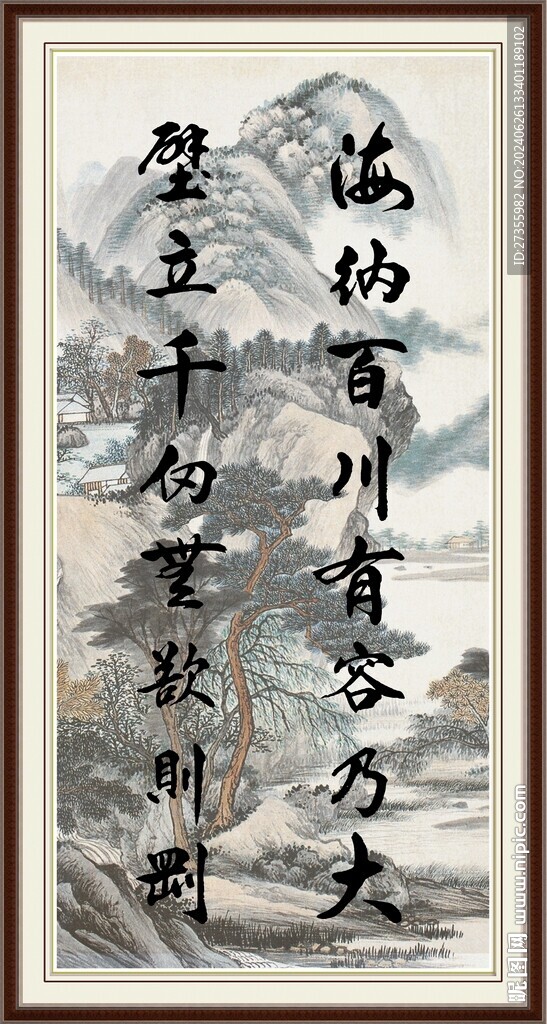 海納百川有容乃大
壁立千仞無欲則剛
ID:27355982 NO:20240626133401189102
昵图网 www.nipic.com